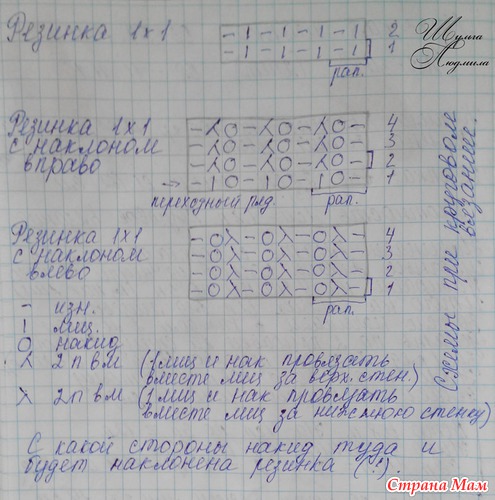 Резинка 1х1
- 1 - 1 - 1 - 1 2
- 1 - 1 - 1 - 1 1
рап.
Шульга
Людмила
Резинка 1х1
с наклоном
вправо
- ⅄ O - ⅄ O - ⅄ O - 4
- ⅄ O - ⅄ O - ⅄ O - 3
- ⅄ O - ⅄ O - ⅄ O - 2
- 1 O - 1 O - 1 O - 1
→
переходный ряд
рап.
Резинка 1х1
с наклоном
влево
- O ⋋ - O ⋋ - O ⋋ - 4
- O ⋋ - O ⋋ - O ⋋ - 3
- O ⋋ - O ⋋ - O ⋋ - 2
- O ⋋ - O ⋋ - O ⋋ - 1
рап.
- изн.
1 лиц.
O накид
⅄ 2 п вм (1 лиц и нак провязать
вместе лиц за верх. стен.)
⋋ 2 п вм (1 лиц и нак провязать
вместе лиц за нижнюю стенку)
С какой стороны накид туда и
будет наклонена резинка (!).
Схемы при круговом
вязании.
Страна Мам